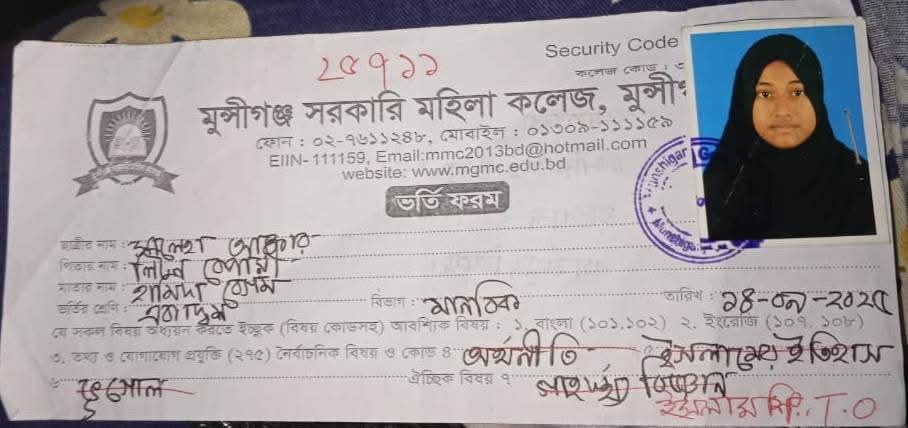 Security Code
২৫৭১১
কলেজ কোড :
মুন্সীগঞ্জ সরকারি মহিলা কলেজ, মুন্সীগ
ফোন : ০২-৭৬১১২৪৮, মোবাইল : ০১৩০৯-১১১১৫৯
EIIN- 111159, Email:mmc2013bd@hotmail.com
website: www.mgmc.edu.bd
ভর্তি ফরম
Munshigar
ছাত্রীর নাম : আক্তার
পিতার নাম :
মাতার নাম : বেগম
ভর্তির শ্রেণি : একাদশ বিভাগ : মানবিক তারিখ : ১৪-০৯-২০২৫
যে সকল বিষয় অধ্যয়ন করতে ইচ্ছুক (বিষয় কোডসহ) আবশ্যিক বিষয় : ১. বাংলা (১০১,১০২) ২. ইংরেজি (১০৭, ১০৮)
৩. তথ্য ও যোগাযোগ প্রযুক্তি (২৭৫) নৈর্বাচনিক বিষয় ও কোড ৪ অর্থনীতি ইসলামের ইতিহাস
ভূগোল ঐচ্ছিক বিষয় ৭ গার্হস্থ্য বিজ্ঞান
P. T. O